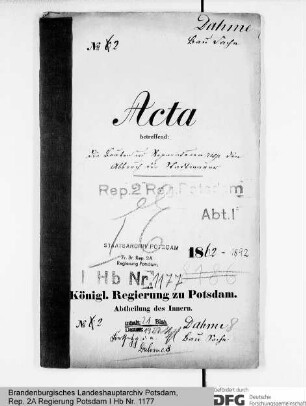 Dahme
No K 2
Bau Sache
Acta
betreffend:
die Bauten und Reparaturen
Abbruch der Stadtmauer
Rep. 2 Reg. Potsdam
Abt. I
STAATSARCHIV POTSDAM
Pr. Br. Rep. 2A
Regierung Potsdam.
1862-1892
I Hb Nr. 1177
Königl. Regierung zu Potsdam.
Abtheilung des Innern.
No K 2
Dahme 8
Bau Sache
Dahme 8
Brandenburgisches Landeshauptarchiv Potsdam,
Rep. 2A Regierung Potsdam I Hb Nr. 1177
Gefördert durch
DFG Deutsche
Forschungsgemeinschaft